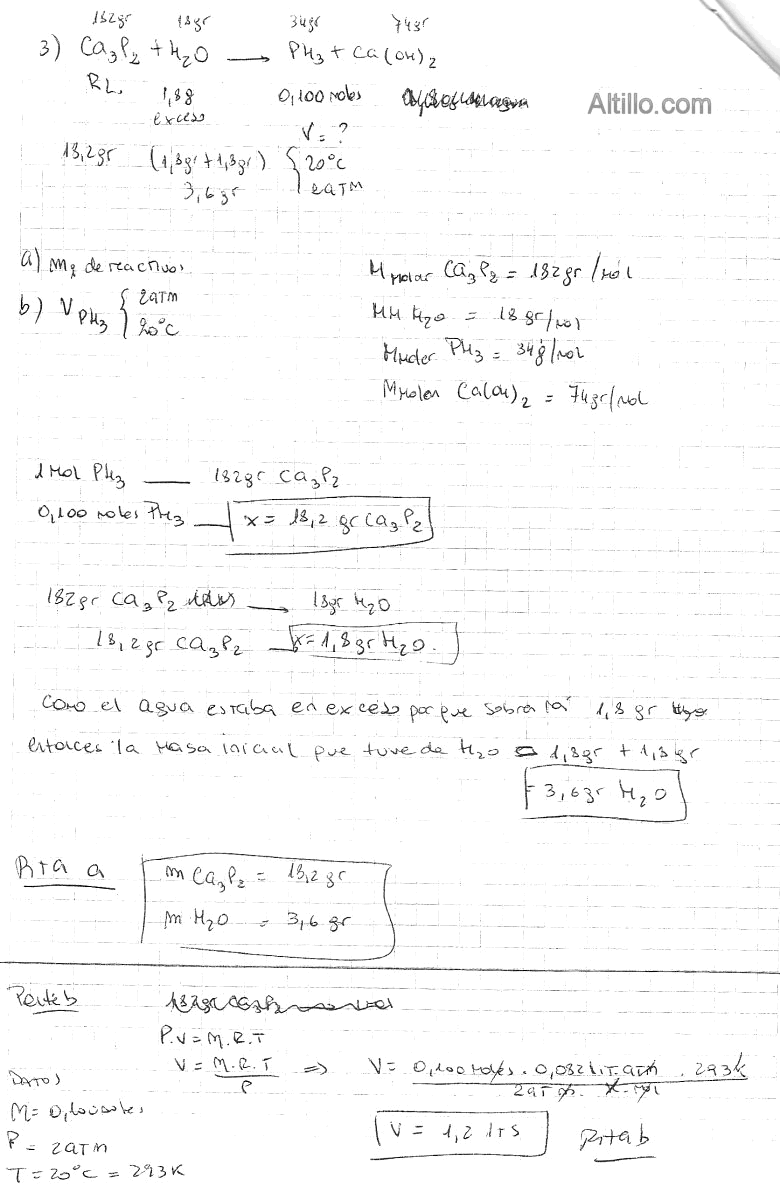 182gr 18gr 34gr 74gr
3) Ca3P2 + H2O → PH3 + Ca(OH)2
RL. 1,8g 0,100 moles
exceso
Altillo.com
V=?
18,2gr (1,8gr+1,8gr) { 20°C
3,6gr 2ATM
a) m de reactivos
b) V PH3 { 2ATM
20°C
M molar Ca3P2 = 182gr/mol
MM H2O = 18gr/mol
Mmolar PH3 = 34g/mol
Mmolar Ca(OH)2 = 74gr/mol
1 Mol PH3 — 182gr Ca3P2
0,100 moles PH3 — x = 18,2 gr Ca3P2
182gr Ca3P2 → 18gr H2O
18,2gr Ca3P2 — x=1,8gr H2O.
Como el agua estaba en exceso porque sobra 1,8 gr
entonces la masa inicial que tuve de H2O = 1,8gr + 1,8gr
= 3,6gr H2O
Rta a
m Ca3P2 = 18,2gr
m H2O = 3,6 gr
Parte b
P.V = M.R.T
V = M.R.T / P ⇒ V = 0,100 moles . 0,082 LT.ATM . 293K
2ATM . K . mol
DATOS
M= 0,100 moles
P = 2ATM
T = 20°C = 293K
V = 1,2 lts Rta b